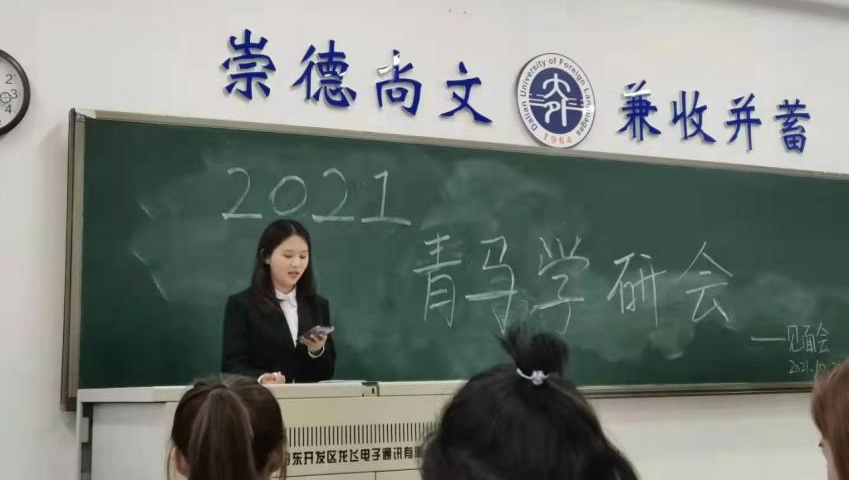 崇德尚文
Dalian University of Foreign Languages
大外
1964
兼收并蓄
2
3
4
2021
青马学研会
——见面会
2021.10.2
东开发区龙飞电子通讯有